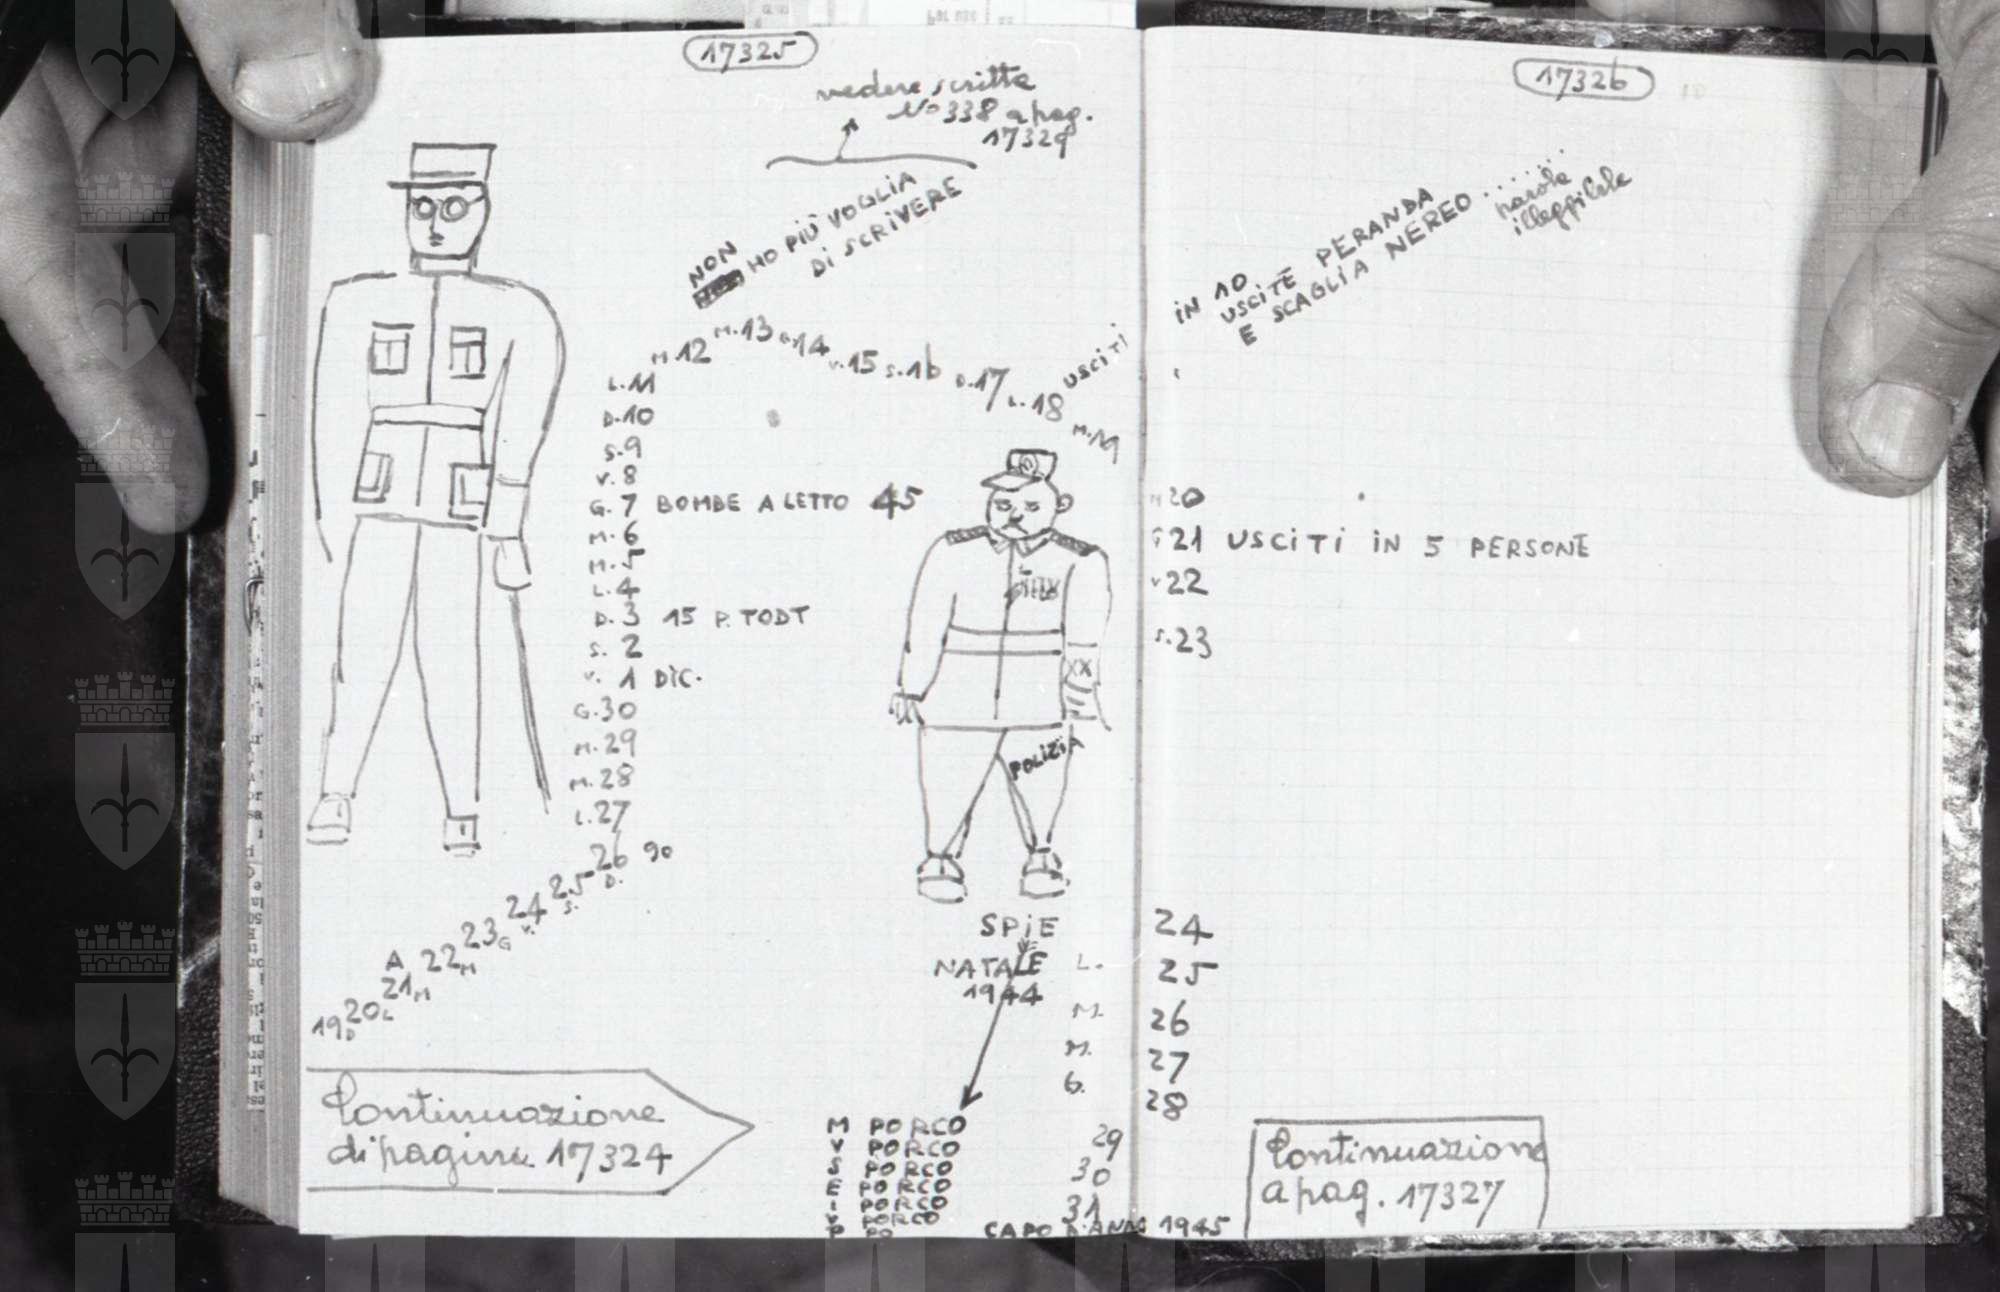 17325
vedere scritta
No 338 a pag.
17329
NON
HO PIÙ VOGLIA
DI SCRIVERE
L. 11
M. 12
M. 13
G. 14
V. 15
S. 16
D. 17
L. 18
M. 19
USCITI
D. 10
S. 9
V. 8
G. 7 BOMBE A LETTO 45
M. 6
M. 5
L. 4
D. 3 15 P. TODT
S. 2
V. 1 DIC.
G. 30
M. 29
M. 28
L. 27
26 90
D.
25
S.
24
V.
23 G
A 22 M
21 M
20 L
19 D
POLIZIA
XX
M
SPIE
NATALE
1944
Continuazione
di pagina 17324
M PORCO
V PORCO
S PORCO
E PORCO
i PORCO
V PORCO
P PO
17326
IN 10
USCITE PERANDA
E SCAGLIA NEREO ........
parola
illeggibile
20
G 21 USCITI IN 5 PERSONE
V 22
S. 23
24
L. 25
M. 26
M. 27
G. 28
29
30
31
CAPO D'ANNO 1945
Continuazione
a pag. 17327